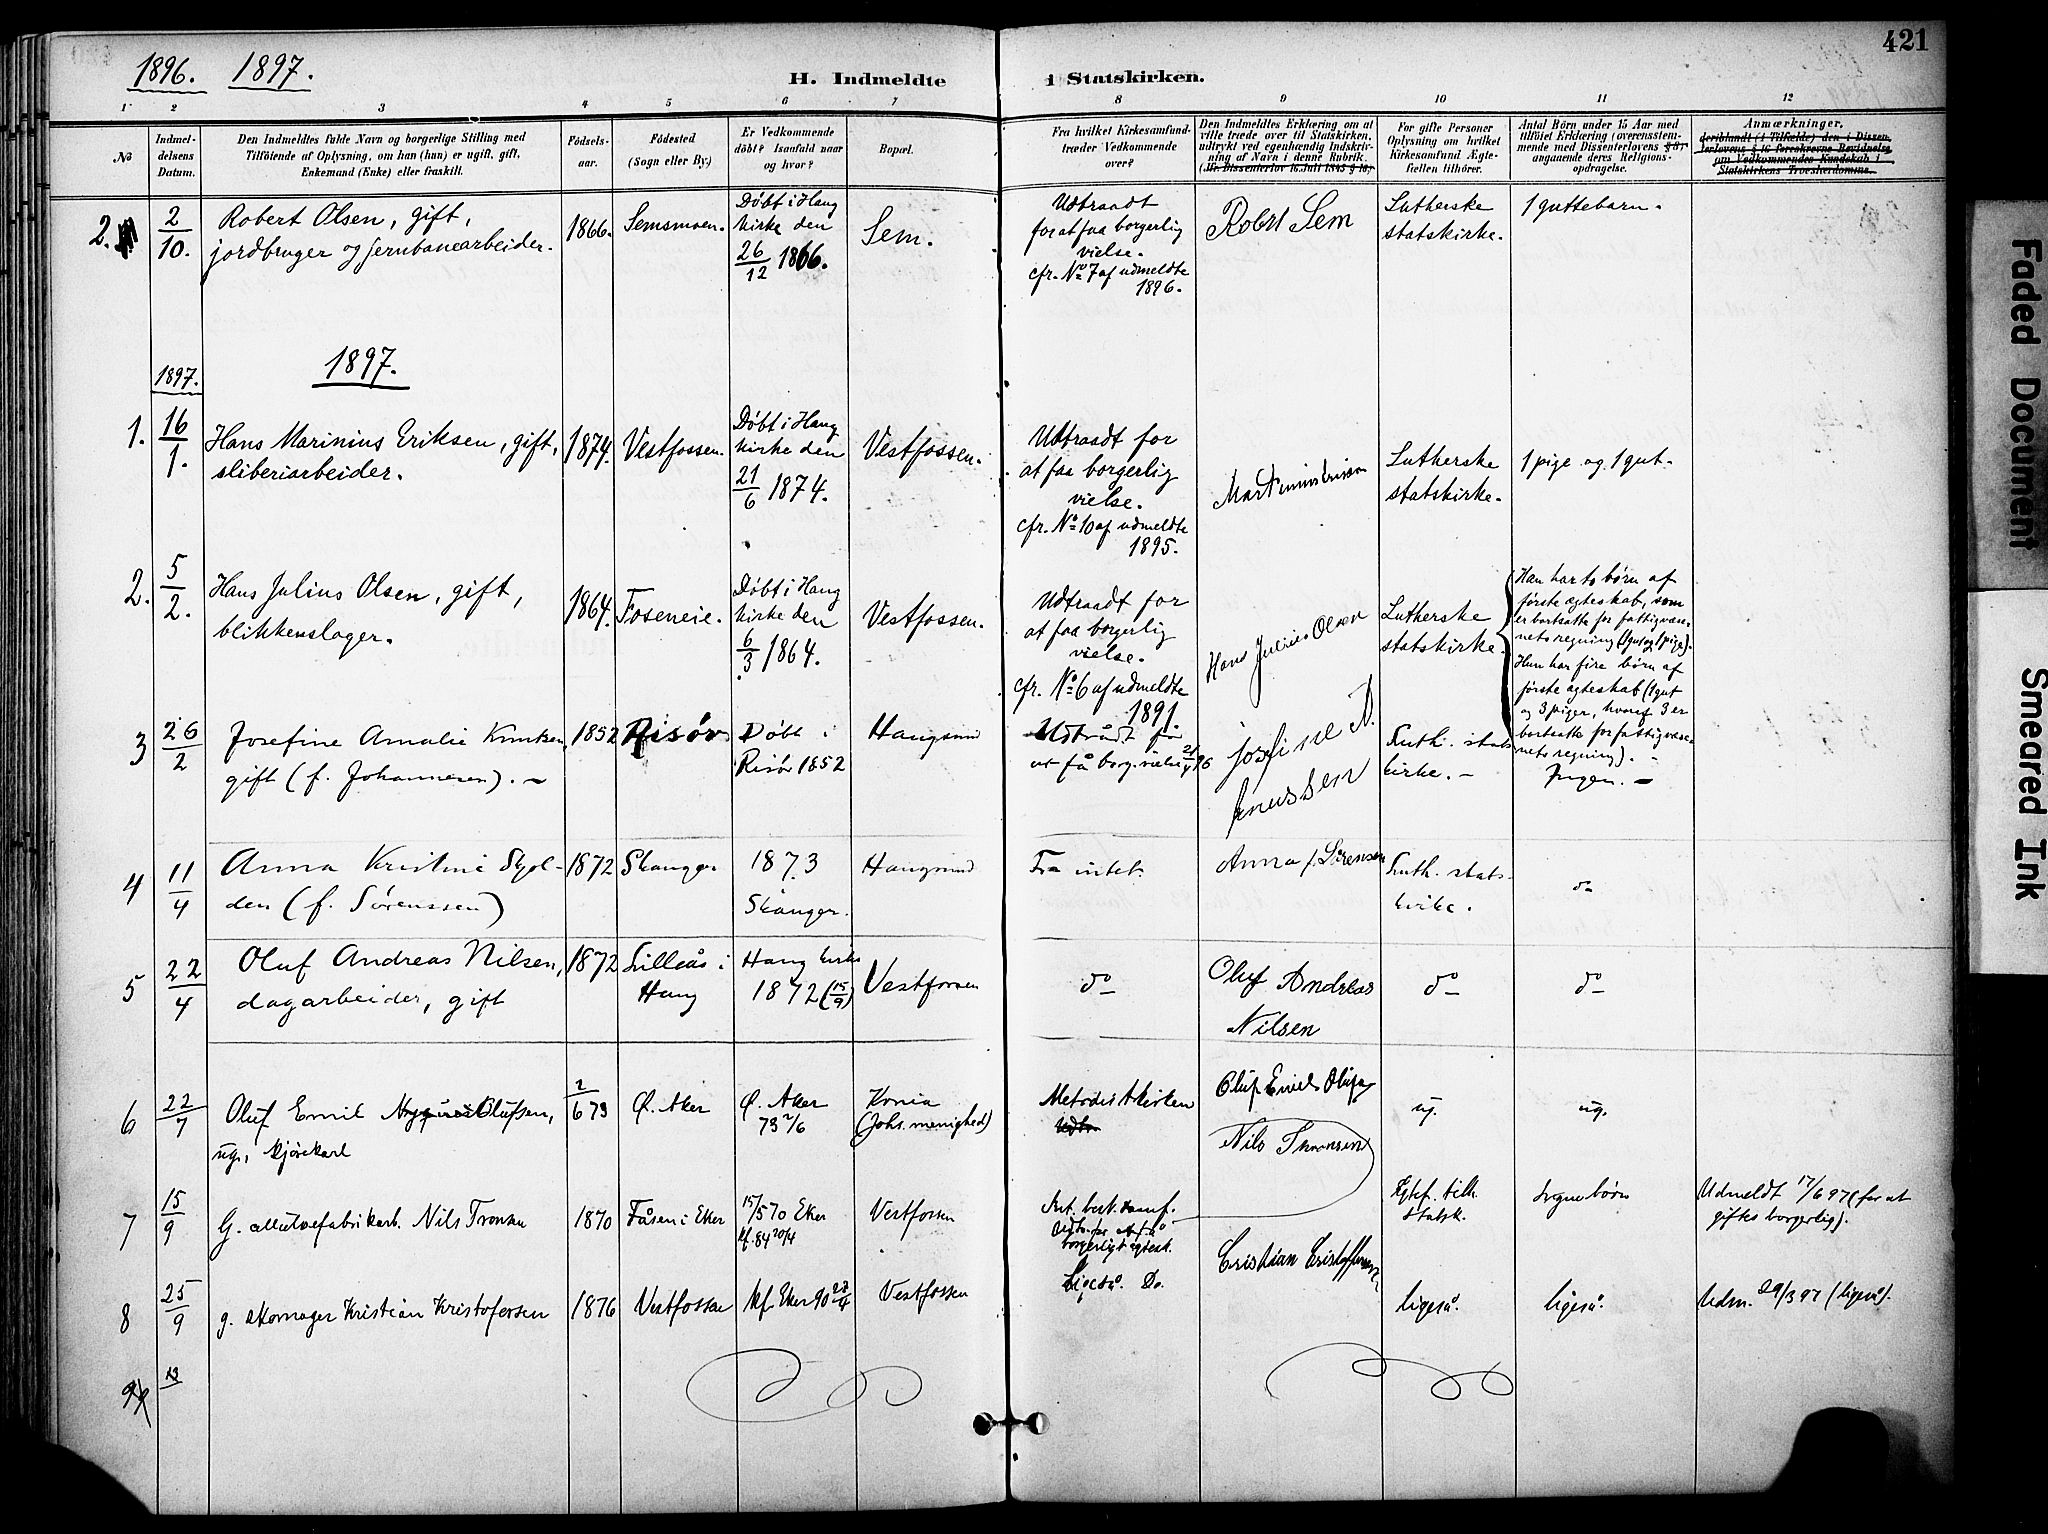 421
1896. 1897.
H. Indmeldte i Statskirken.
1 2 3 4 5 6 7 8 9 10 11 12
No
Indmel-
delsens
Datum.
Den Indmeldtes fulde Navn og borgerlige Stilling med
Tilföiende af Oplysning, om han (hun) er ugift, gift,
Enkemand (Enke) eller fraskilt.
Födsels-
aar.
Födested
(Sogn eller By.)
Er Vedkommende
döbt? Isaafald naar
og hvor?
Bopæl.
Fra hvilket Kirkesamfund
træder Vedkommende
over?
Den Indmeldtes Erklæring om at
ville træde over til Statskirken,
udtrykt ved egenhændig Indskriv-
ning af Navn i denne Rubrik.
(jfr. Dissenterlov 16 Juli 1845 § 16)
For gifte Personer
Oplysning om hvilket
Kirkesamfund Ægte-
fællen tilhörer.
Antal Börn under 15 Aar med
tilföiet Erklæring (overensstem-
mende med Dissenterlovens § 8)
angaaende deres Religions-
opdragelse.
Anmærkninger,
deriblandt (i Tilfælde) den i Dissen-
terlovens § 16 foreskrevne Bevidnelse
om Vedkommendes Kundskab i
Statskirkens Troeslærdomme.
2.
2/10.
Robert Olsen, gift,
jordbruger og jernbanearbeider.
1866.
Semsmoen.
Døbt i Haug
kirke den
26/12 1866.
Sem.
Udtraadt
for at faa borgerlig
vielse.
cfr. No 7 af udmeldte
1896.
Robert Sem
Lutherske
statskirke.
1 guttebarn.
1897.
1897.
1.
16/1.
Hans Marinius Eriksen, gift,
sliberiarbeider.
1874.
Vestfossen.
Døbt i Haug
kirke den
21/6 1874.
Vestfossen.
Udtraadt for
at faa borgerlig
vielse.
cfr. No 10 af udmeldte
1895.
Lutherske
statskirke.
1 pige og 1 gut.
2.
5/2.
Hans Julius Olsen, gift,
blikkenslager.
1864.
Foseneie.
Døbt i Haug
kirke den
6/3 1864.
Vestfossen.
Udtraadt for
at faa borgerlig
vielse.
cfr. No 6 af udmeldte
1891.
Hans Julius Olsen
Lutherske
statskirke.
Han har to børn af
første ægteskab, som
er bortsatte for fattigvæse-
nets regning (1 gut og 1 pige).
Hun har fire børn af
første ægteskab (1 gut
og 3 piger, hvoraf 3 er
bortsatte for fattigvæse-
nets regning).
3
26/2
Josefine Amalie Knutsen,
gift (f. Johannesen). -
1852
Risør
Døbt i
Risør 1852
Haugsund
Udtrådt for
at få borg. vielse 21/4 96
Josefine A.
Knussen
Luth. stats
kirke. -
Ingen. -
4
11/4
Anna Kristine Skjol-
den (f. Sørenssen)
1872
Skanger
1873
Skånger.
Haugsund
Fra intet.
Anna f. Sørensen
Luth. stats-
kirke.
do
5
22/4
Oluf Andreas Nilsen,
dagarbeider, gift
1872
Lilleås i
Haug
Haug kirke
1872 (15/9)
Vestfossen
do
Oluf Andreas
Nilsen
do
do
6
22/7
Oluf Emil Olufsen,
ug., kjørekarl
2/6 73
Ø. Aker
Ø. Aker
73 2/6
Kvnia
(Johs. menighed)
Metodistkirken
Udtr.
Oluf Emil Olufsen
ug.
ug.
7
15/9
G. cellulosefabrikarb. Nils Tronsen
1870
Fåsen i Eker
15/5 70 Eker
kf. 84 20/4
Vestfossen
Int. best. samf.
Udtr. for at få
borgerligt ægtesk.
Nils Thronsen
Egtef. tilh.
statsk.
Ingen børn
Udmeldt 17/6 97 (for at
giftes borgerlig).
8
25/9
g. skomager Kristian Kristofersen
1876
Vestfossen
kf. Eker 90 27/4
Vestfossen
Ligeså. Do.
Cristian Cristoffersen
ligeså.
ligeså.
Udm. 29/3 97 (ligeså).
9
13
Faded Document
Smeared Ink